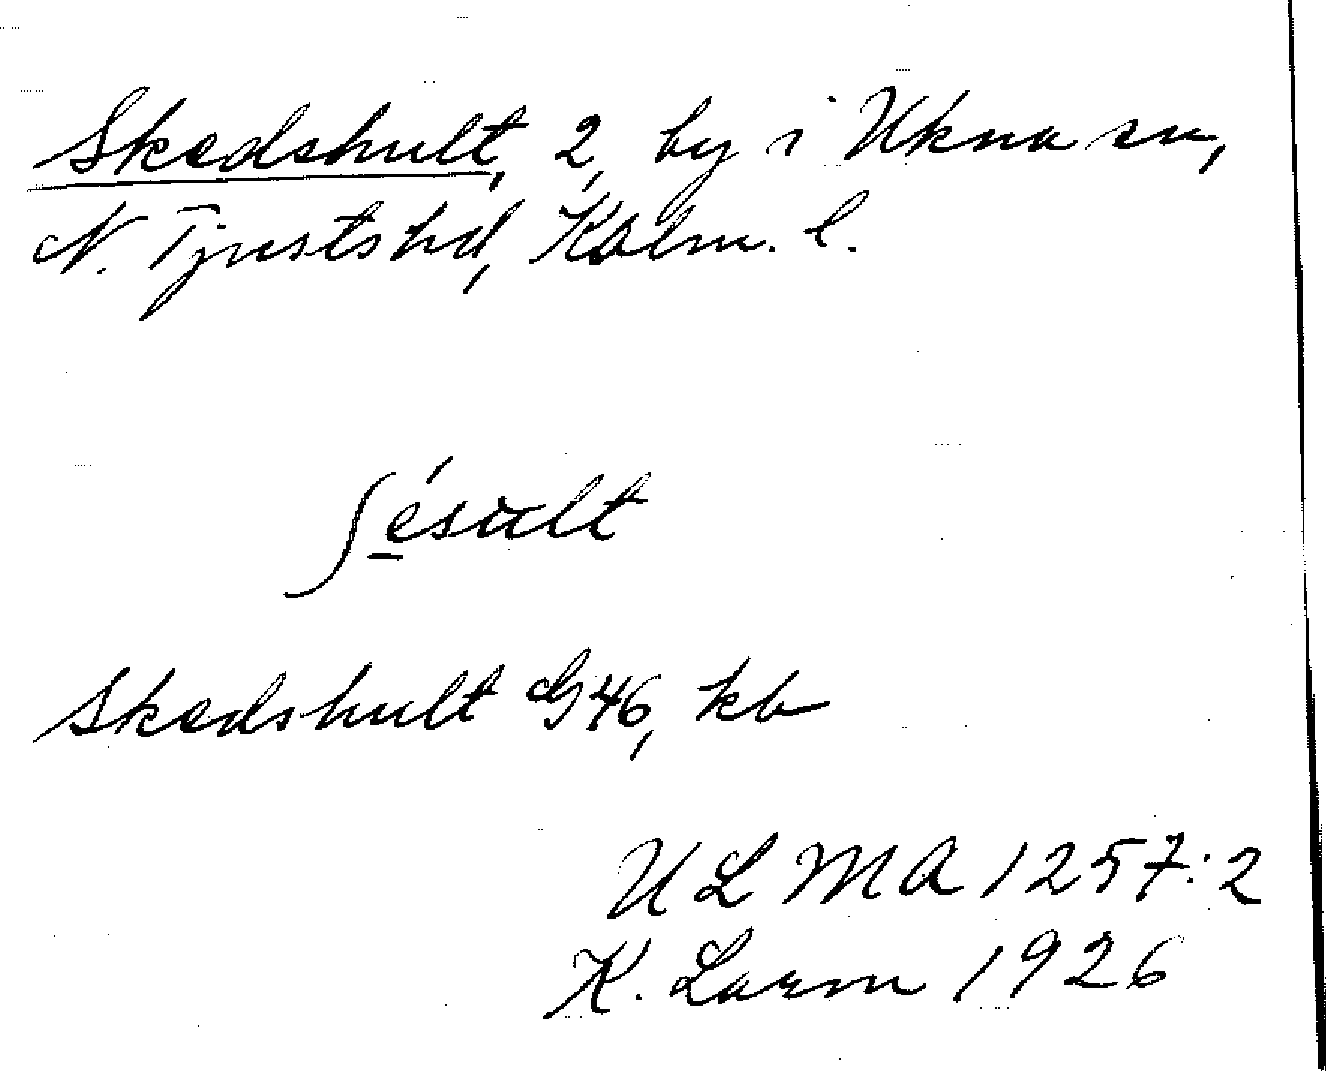 Skedshult, 2, by i Ukna sn,
N. Tjusts hd, Kalm. l.
ʃe̠´su̇lt
Skedshult G46, kb
ULMA 1257:2
K. Larm 1926